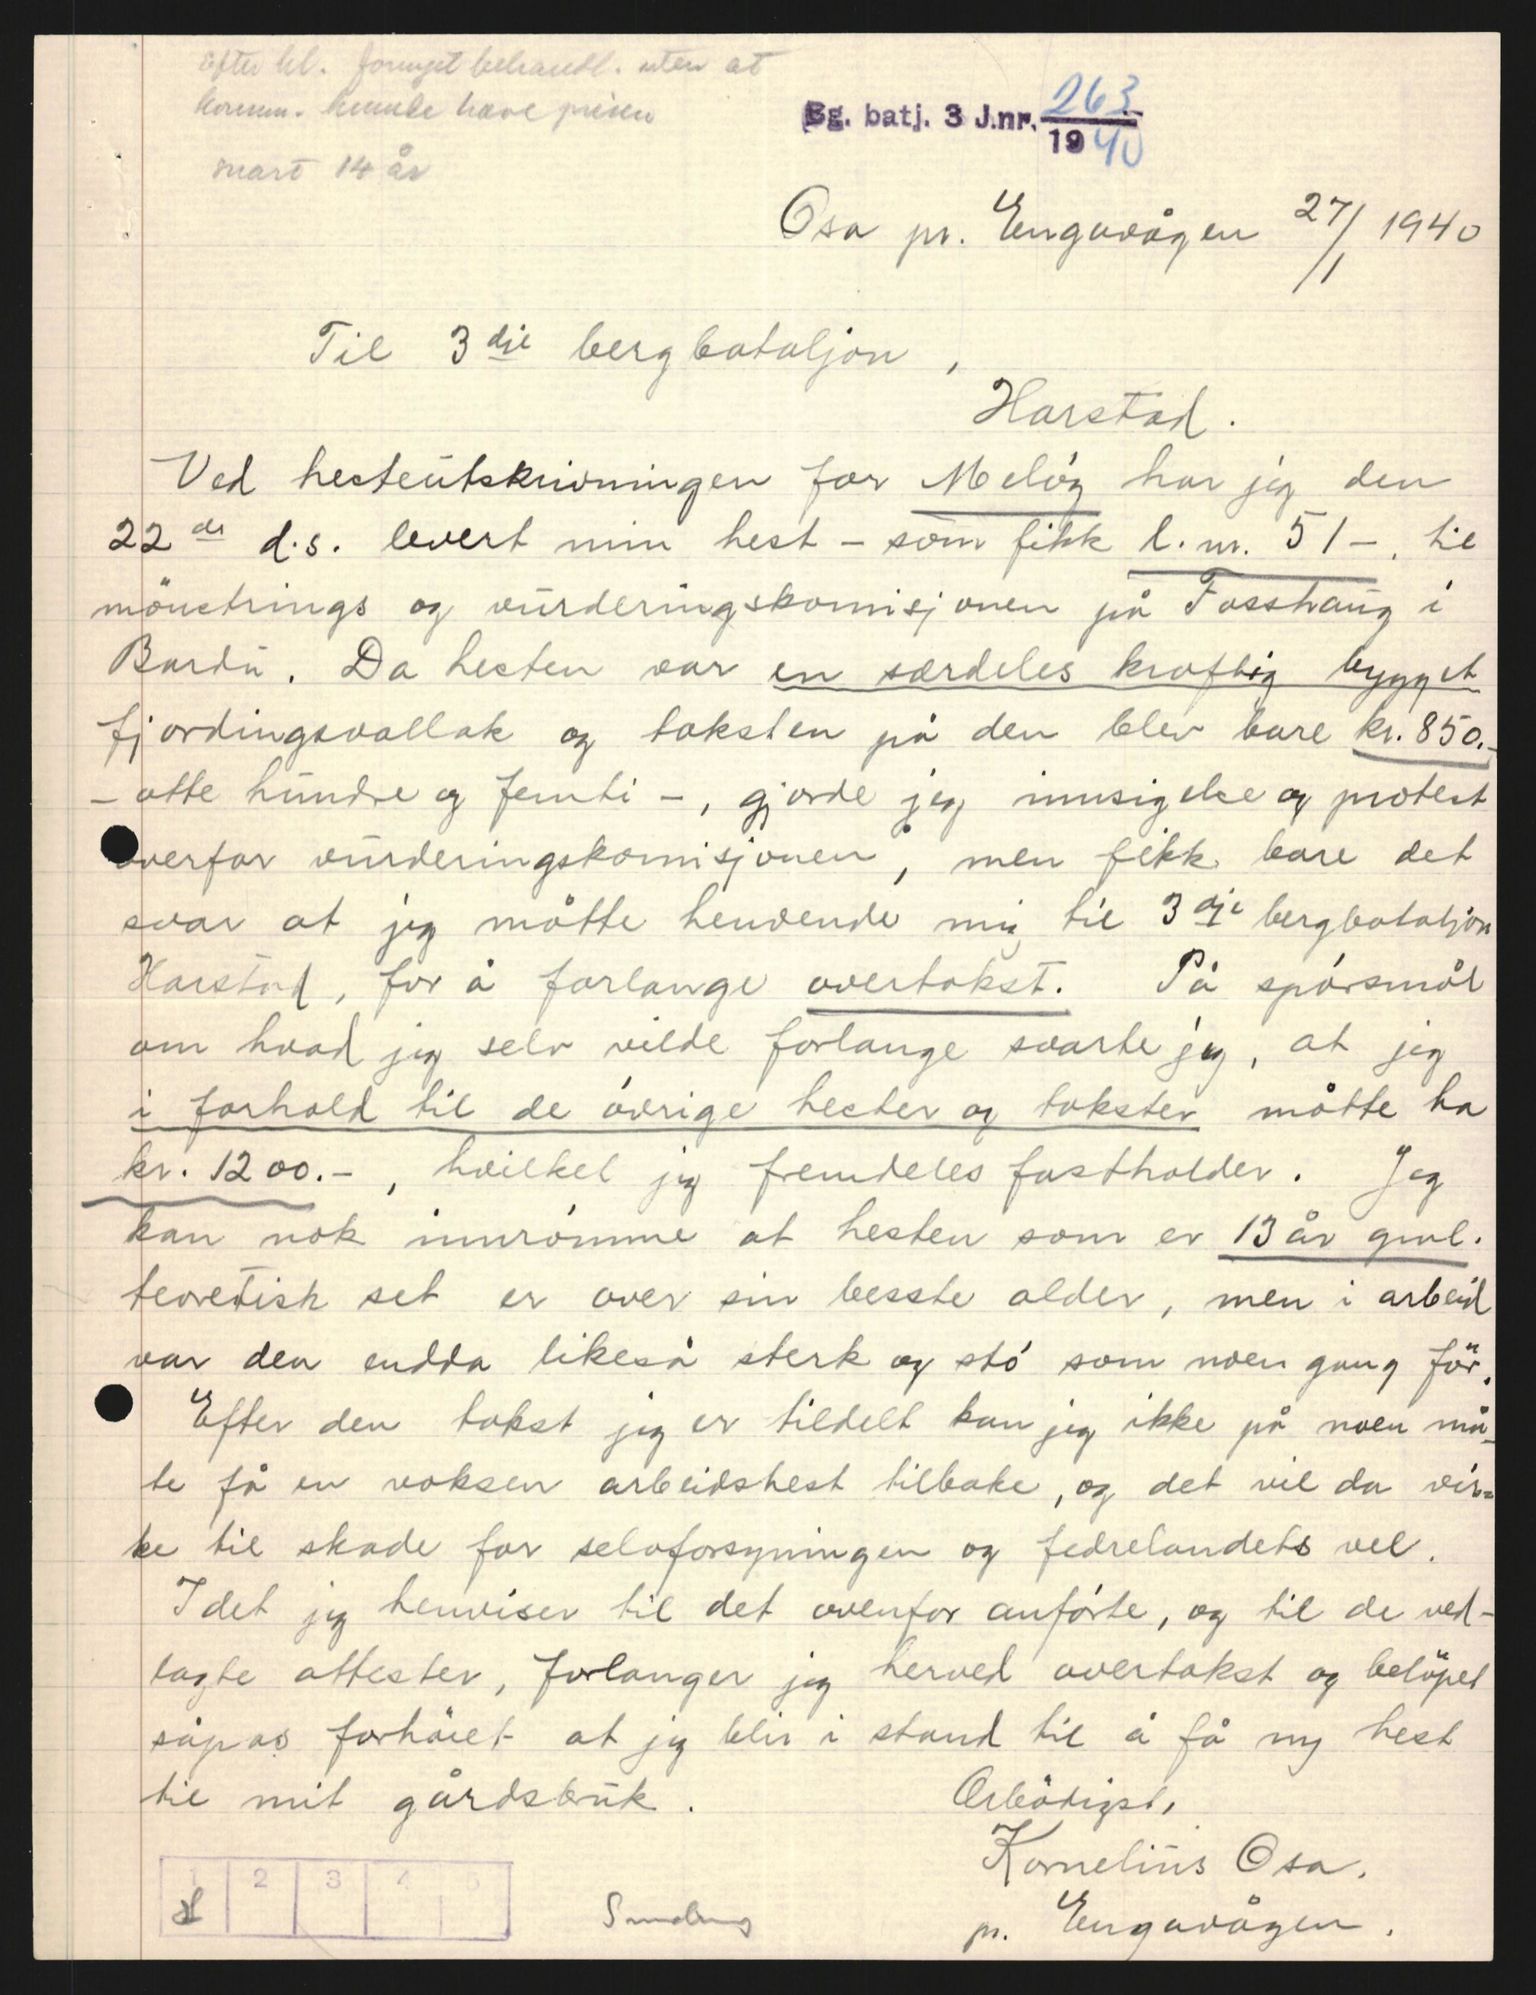 Efter kl. fornyet behandl. uten at
komm. kunde heve prisen
snart 14 år
Bg. batj. 3 J.nr. 263
1940
Osa pr. Engavågen 27/1 1940
Til 3dje bergbataljon,
Harstad.
Ved hesteutskrivningen for Melöy har jeg den
22de d.s. levert min hest - som fikk l.nr. 51 -, til
mönstrings og vurderingskomisjonen på Fosshaug i
Bardu. Da hesten var en særdeles kraftig bygget
fjordingsvallak og taksten på den blev bare kr. 850.-
- otte hundre og femti -, gjorde jeg innsigelse og protest
overfor vurderingskomisjonen, men fikk bare det
svar at jeg måtte henvende mig til 3dje bergbataljon
Harstad, for å forlange overtakst. På spörsmål
om hvad jeg selv vilde forlange svarte jeg, at jeg
i forhold til de övrige hester og takster måtte ha
kr. 1200.-, hvilket jeg fremdeles fastholder. Jeg
kan nok innrömme at hesten som er 13 år gml.
teoretisk set er over sin besste alder, men i arbeid
var den endda likeså sterk og stö som noen gang för.
Efter den takst jeg er tildelt kan jeg ikke på noen må-
te få en voksen arbeidshest tilbake, og det vil da vir-
ke til skade for selvforsyningen og fedrelandets vel.
Idet jeg henviser til det ovenfor anförte, og til de ved-
lagte attester, forlanger jeg herved overtakst og belöpet
såpas forhöiet at jeg blir i stand til å få ny hest
til mit gårdsbruk.
Ærbödigst,
Kornelius Osa.
pr. Engavågen.
1 2 3 4 5